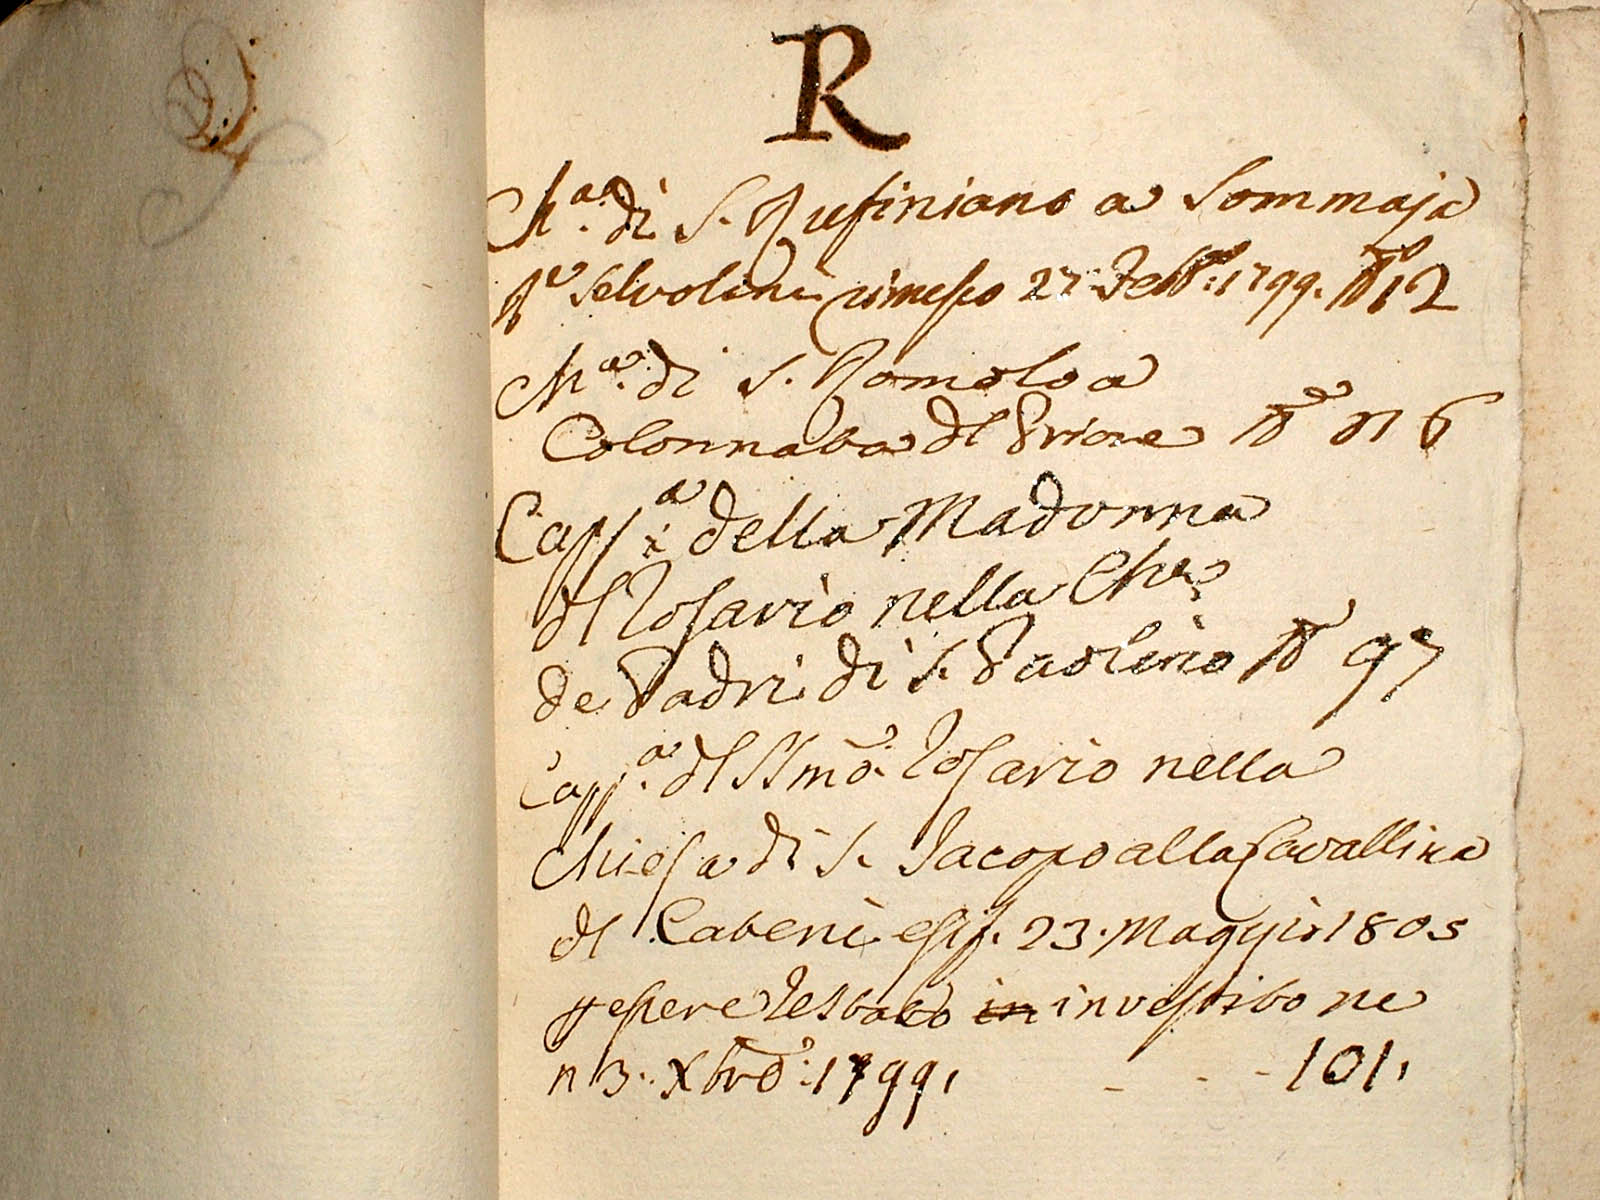 R
Ch.ª di S. Rufiniano a Sommaja
Selvolini rimesso 27 Febb.º 1799. Nº 12
Ch.ª di S. Romolo a
Colonnata del Priore Nº 16
Capp.ª della Madonna
dl Rosario nella Ch.ª
de Padri di S. Paolino Nº 97
Capp.ª dl SSmo. Rosario nella
Chiesa di S. Jacopo alla Cavallina
dl Cateni 23. Maggio 1805
p essere restato in investito ne
n 3. Xbre: 1799, - - - 101,